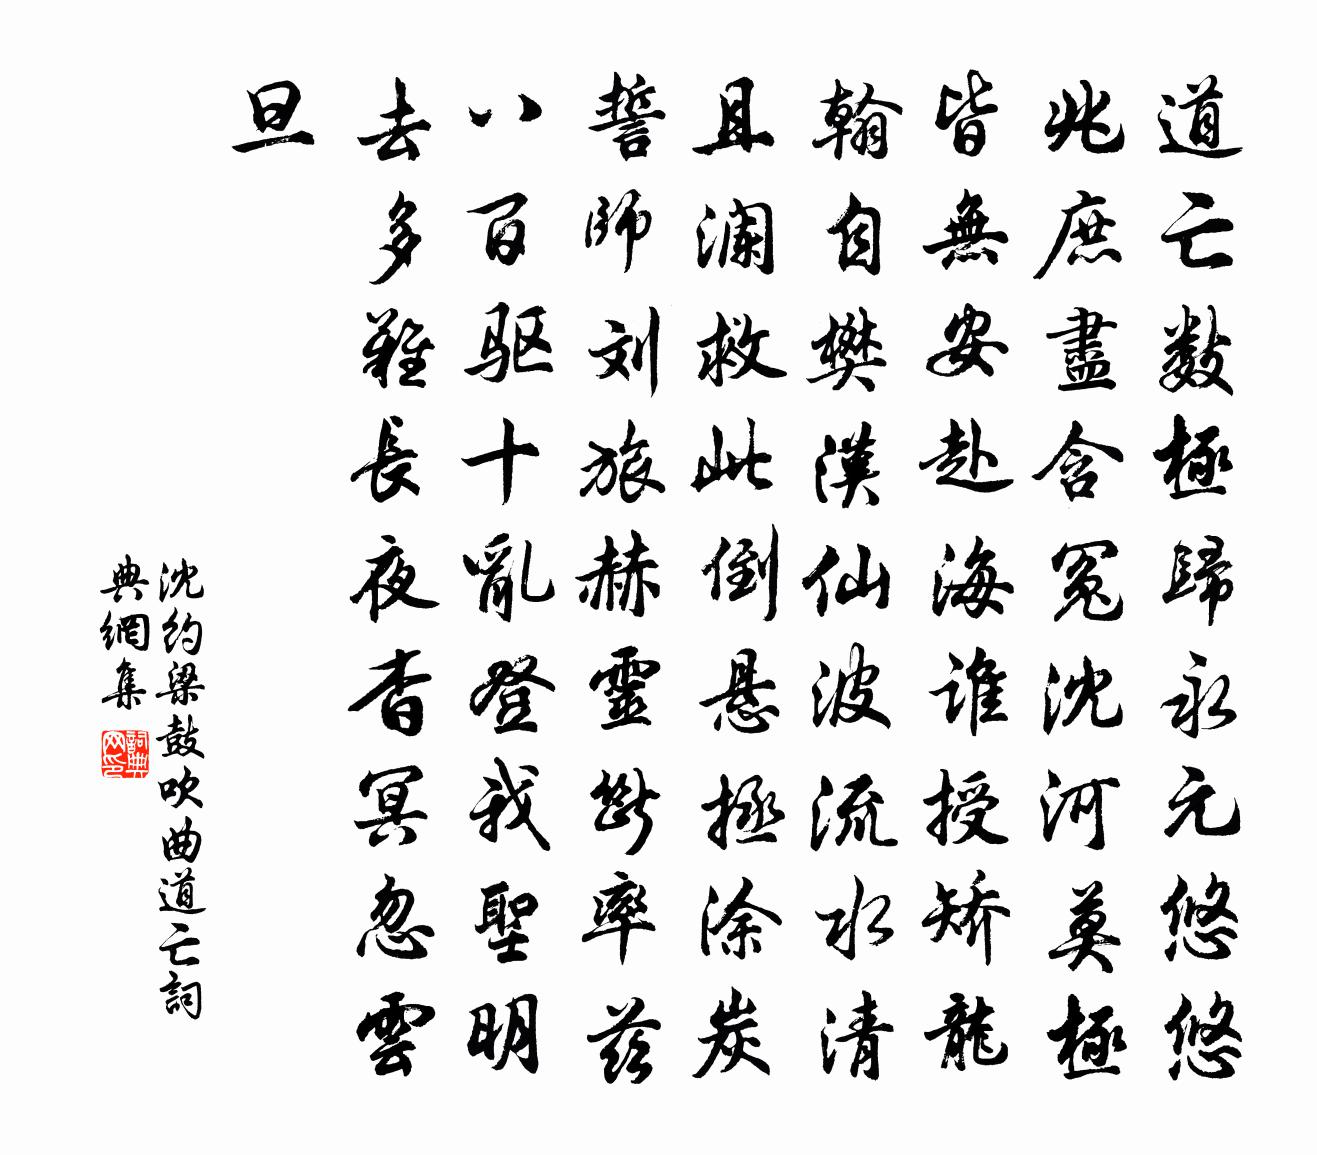 道亡數極歸永元悠悠
兆庶盡含冤沈河莫極
皆無安赴海谁授矫龍
翰自樊漢仙波流水清
且澜救此倒悬拯涂炭
誓師刘旅赫靈斷率兹
八百驱十亂登我聖明
去多難長夜杳冥忽雲
旦
沈约梁鼓吹曲道亡詞
典網集
詞典网印